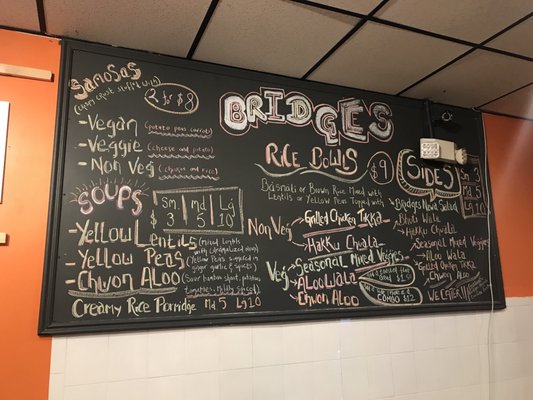 SAMOSAS
2 for $8
- Vegan (potato peas carrot)
- Veggie (cheese and potato)
- Non Veg (chicken and rice)
SOUPS
Sm. Md Lg
3 5 10
- Yellow Lentils (mixed lentils
with caramelized onion)
- Yellow Peas (Yellow Peas simmered in
ginger garlic &
- Chwon Aloo (Sour bamboo shoot, potatoes
Creamy Rice Porridge Md 5 Lg 10
BRIDGES
RICE BOWLS $9
Basmati or Brown Rice Mixed with
Lentils or Yellow Peas Topped with
Non Veg
Grilled Chicken Tikka
Hakku Chwala
Veg
Seasonal Mixed Veggies
Aloo Wala
Chwon Aloo
COMBO $12
SIDES
Sm 3
Md 5
Lg 10
Bridges Newa Salad
Bhuti Wala
Hakku Chwala
Seasonal Mixed Veggies
Aloo Wala
Grilled Chicken Tikka
Chwon Aloo
WE CATER!!